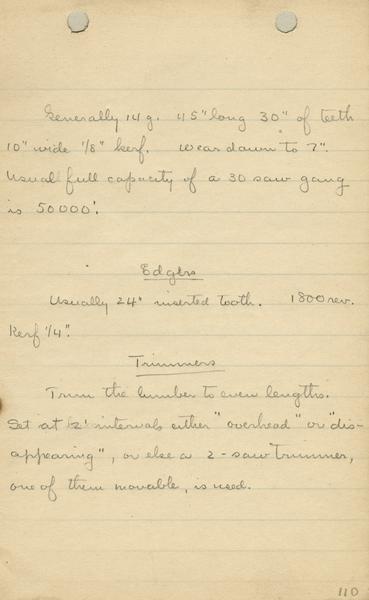 Generally 14 g. 45" long 30" of teeth
10" wide 1/8" kerf. Wear down to 7".
Usual full capacity of a 30 saw gang
is 50000'.
Edgers
Usually 24" inserted tooth. 1800 rev.
Kerf 1/4".
Trimmers
Trim the lumber to even lengths.
Set at 2' intervals either "overhead" or "dis-
appearing", or else a 2-saw trimmer,
one of them movable, is used.
110